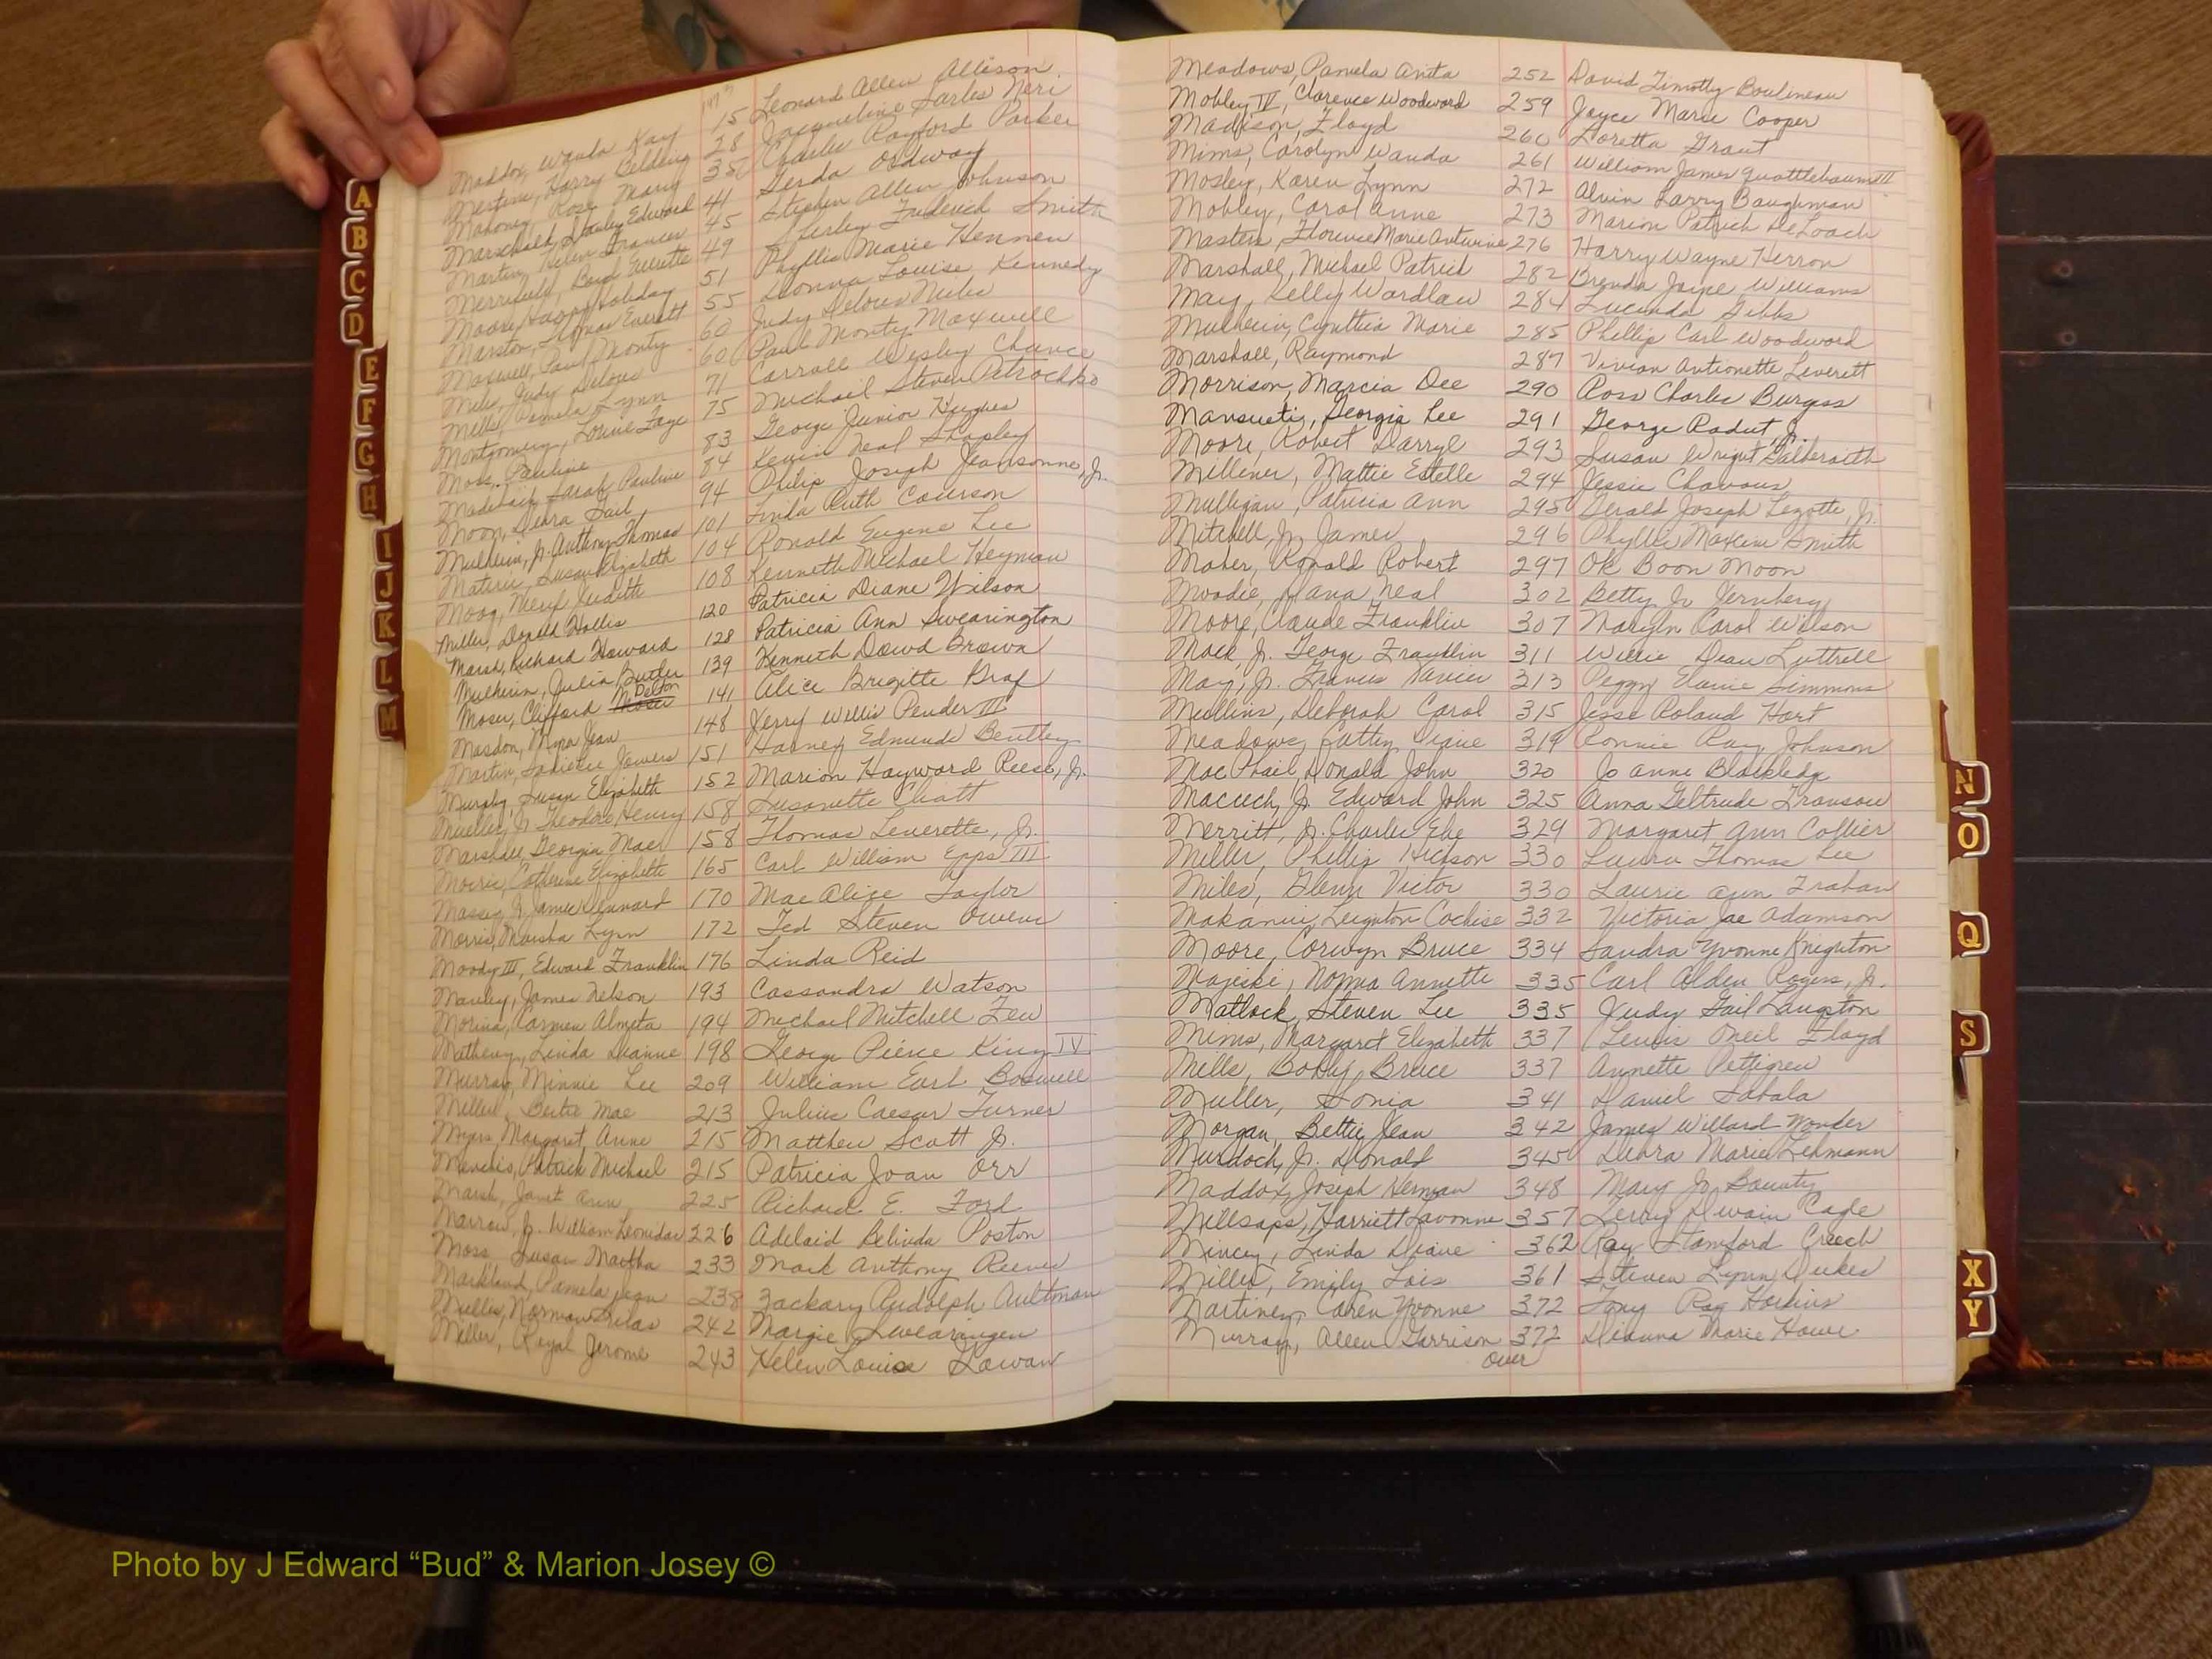 A
B
C
D
E
F
G
H
I
J
K
L
M
Maddox, Wanda Kay 15 Leonard Allen Allison
Harry Belding 28 Jacqueline Sarles Neri
Mahoney, Rose Mary 35 Charles Rayford Parker
Marschalk, Stanley Edward 41 Gerda Ordway
Martin, Helen Frances 45 Stephen Allen Johnson
Merrifield, Boyd Everette 49 Shirley Frederick Smith
Moore, Holiday 51 Phyllis Marie Hennen
Marston, Thomas Everett 55 Donna Louise Kennedy
Maxwell, Paul Monty 60 Judy Delores Miles
Miles, Judy Delores 60 Paul Monty Maxwell
Mills, Pamela Lynn 71 Carroll Wesley Chance
Montgomery, Louise Faye 75 Michael Steven Petrochko
Moss, Pauline 83 George Junior Hughes
Sarah Pauline 84 Kevin Neal Shapley
Moon, Debra Gail 94 Philip Joseph Jeansonne, Jr.
Mulherin, Jr. Anthony Thomas 101 Linda Ruth Courson
Susan Elizabeth 104 Ronald Eugene Lee
Moog, Meryl Judith 108 Kenneth Michael Heyman
Miller, Donald Hollis 120 Patricia Diane Wilson
Marsh, Richard Howard 128 Patricia Ann Swearington
Mulherin, Julia Butler 139 Kenneth Dowd Brown
Moser, Clifford McDelton 141 Alice Brigitte Graf
Masdon, Myra Jean 148 Jerry Willis Pender III
Martin, Jowers 151 Harney Edmunde Bentley
Murphy, Susan Elizabeth 152 Marion Hayward Reese, Jr.
Mueller, Jr. Theodore Henry 158 Susanette Chatt
Marshall, Georgia Mae 158 Thomas Leverette, Jr.
Morris, Catherine Elizabeth 165 Carl William Epps III
Massey, Jr. James Dennard 170 Mae Alice Taylor
Morris, Marsha Lynn 172 Ted Steven Owens
Moody III, Edward Franklin 176 Linda Reid
Manley, James Nelson 193 Cassandra Watson
Morina, Carmen Almeta 194 Michael Mitchell Few
Matheny, Linda Dianne 198 George Pierce King IV
Murray, Minnie Lee 209 William Earl Boswell
Miller, Bertie Mae 213 Julius Caesar Turner
Myers, Margaret Anne 215 Matthew Scott Jr.
Patrick Michael 215 Patricia Joan Orr
Marsh, Janet Ann 225 Richard E. Ford
Marrow, Jr. William Leonidas 226 Adelaid Belinda Poston
Moss, Susan Martha 233 Mark Anthony Reeves
Markland, Pamela Jean 238 Zackary Rudolph Aultman
Miller, Norman Silas 242 Margie Swearingen
Miller, Royal Jerome 243 Helen Louise Lowan
Meadows, Pamela Anita 252 David Timothy Boulineau
Mobley IV, Clarence Woodward 259 Joyce Marie Cooper
Madison, Floyd 260 Loretta Grant
Mims, Carolyn Wanda 261 William James Quattlebaum III
Mosley, Karen Lynn 272 Alvin Larry Baughman
Mobley, Carol Anne 273 Marion Patrick DeLoach
Masters, Florence Marie Antoinne 276 Harry Wayne Herron
Marshall, Michael Patrick 282 Brenda Jayne Williams
May, Kelly Wardlaw 284 Lucinda Gibbs
Mulherin, Cynthia Marie 285 Phillip Carl Woodward
Marshall, Raymond 287 Vivian Antionette Leverett
Morrison, Marcia Dee 290 Ross Charles Burgess
Mansueti, Georgia Lee 291 George Radut, Jr.
Moore, Robert Darryl 293 Susan Wright Galbreaith
Millener, Mattie Estelle 294 Jessie Chavous
Mulligan, Patricia Ann 295 Gerald Joseph Lezotte, Jr.
Mitchell, Jr. James 296 Phyllis Maxine Smith
Maher, Ronald Robert 297 Ok Boon Moon
Moodie, Dana Neal 302 Betty Jo Jernberg
Moore, Claude Franklin 307 Marilyn Carol Wilson
Mack, Jr. George Franklin 311 Willie Dean Luttrell
May, Jr. Francis Xavier 313 Peggy Elaine Simmons
Mullins, Deborah Carol 315 Jesse Roland Hart
Meadows, Cathy Diane 319 Ronnie Ray Johnson
MacPhail, Donald John 320 Jo Anne Blackledge
Maciech, Jr. Edward John 325 Anna Geltrude Fransou
Merritt, Jr. Charlie Ebe 329 Margaret Ann Collier
Miller, Phillip Hickson 330 Laura Thomas Lee
Miles, Glenn Victor 330 Laurie Ann Trahan
Makanui, Leighton Cochise 332 Victoria Jae Adamson
Moore, Corwyn Bruce 334 Sandra Yvonne Knighton
Majeski, Norma Annette 335 Carl Alden Rogers, Jr.
Matlock, Steven Lee 335 Judy Gail Langston
Mims, Margaret Elizabeth 337 Lewis Oneil Floyd
Mills, Bobby Bruce 337 Annette Pettigrew
Muller, Sonia 341 Daniel Sabala
Morgan, Bettie Jean 342 James Willard Wonder
Murdock, Jr. Donald 345 Debra Marie Lehmann
Maddox, Joseph Herman 348 Mary Jo Bounty
Millsaps, Harriett Lavonne 357 Leroy Dwain Cagle
Mincey, Linda Diane 362 Ray Stamford Creech
Miller, Emily Lois 361 Steven Lynn Dukes
Martinez, Caren Yvonne 372 Tony Ray Hoskins
Murray, Allen Garrison 372 Dianna Marie Howe
over
N
O
Q
S
X
Y
Photo by J Edward “Bud” & Marion Josey ©